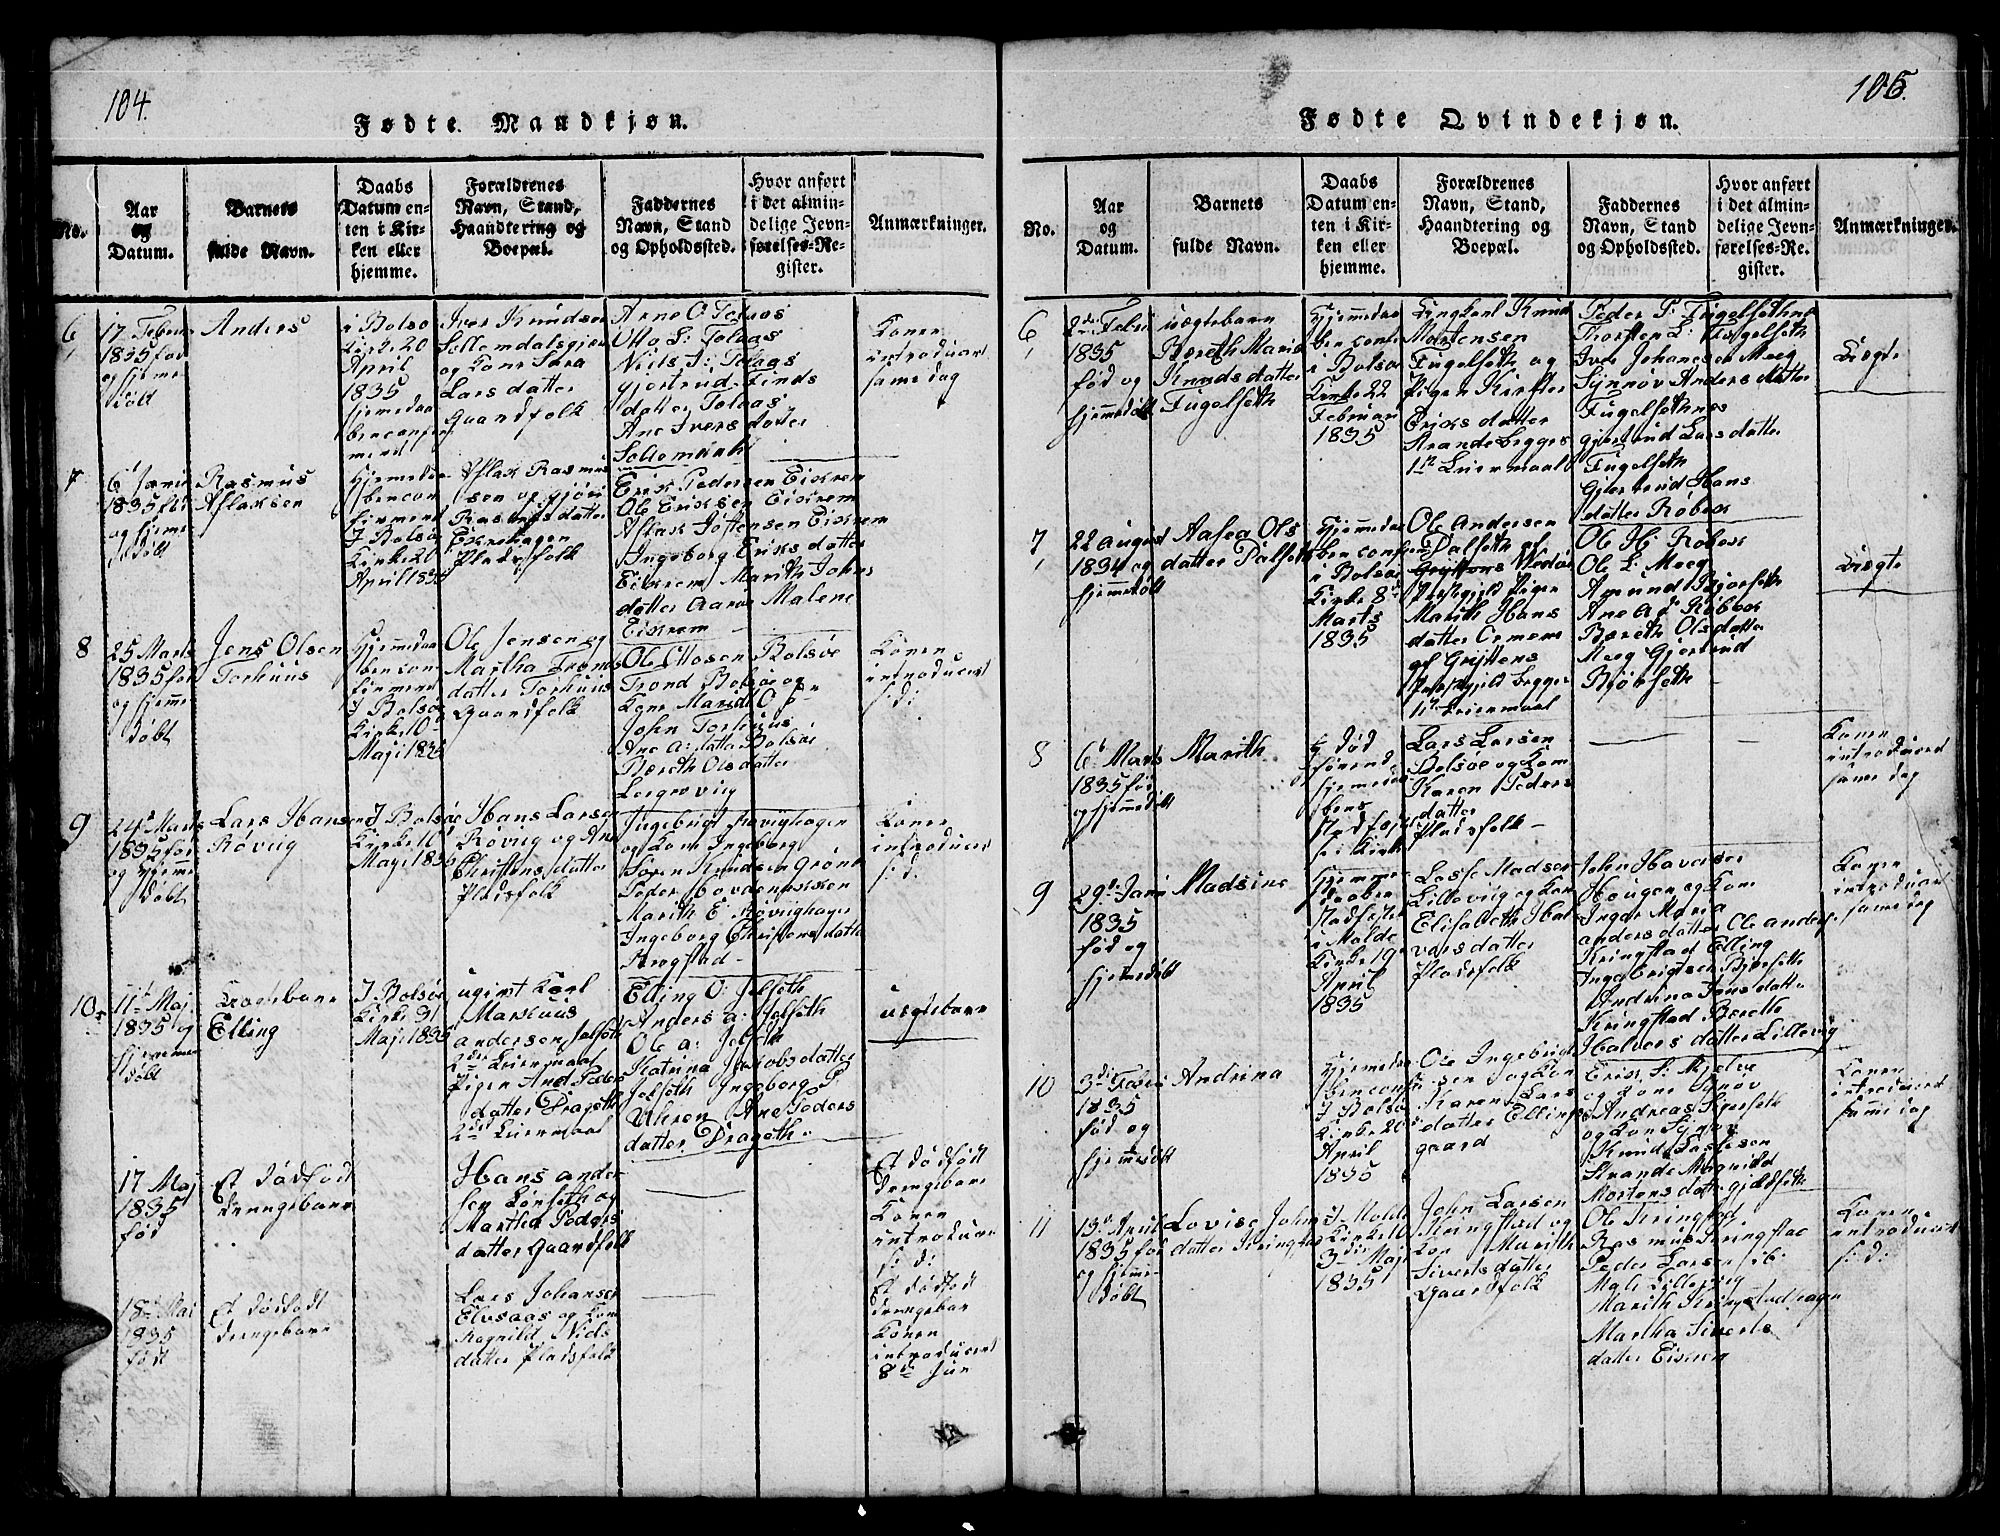 104.
Fødte Mandkjøn.
No.
Aar
og
Datum.
Barnets
fulde Navn.
Daabs
Datum en-
ten i Kir-
ken eller
hjemme.
Forældrenes
Navn, Stand,
Haandtering og
Boepæl.
Faddernes
Navn, Stand
og Opholdssted.
Hvor anført
i det almin-
delige Jevn-
førelses-Re-
gister.
Anmærkninger.
6
17 Febru
1835 fød
og hjeme
døbt
Anders
i Bolsø
Kirke 20
April
1835
hjemedaa
ben confir
mert
Iver Knudsen
og Kone Sara
Lars datter
Gaardfolk
Arne O Tolaas
Otto L: Tolaas
Niels J: Tolaas
gjertrud Finds
datter Tolaas
Ane Ivers datter
Konen
introducert
same dag
7
1835 fød
og hjeme
døbt
Rasmus
Aslaksen
Hjemedaa
ben con
firmert
I Bolsø
Kirke 20
April 1835
Aslak Rasmus
sen og gjøri
Rasmus datter
Pladsfolk
Erik Pedersen Eikrem
Ole Eriksen Eikrem
Aslak Jostensen Eikrem
Ingeborg Eriks datter
Eikrem Marith Johns
datter Aarøe Malene
Eikrem
8
25 Marts
1835 fød
og hjeme
døbt
Jens Olsen
Torhuus
Hjemedaa
ben con
firmert
I Bolsø
Kirke 10
Maji 1835
Ole Jensen og
Martha Tronds
datter Torhuus
Gaardfolk
Ole Ottosen Bolsøe
Trond Bolsøe og
Kone Marit O
John Torhuus
Ane A: datter Bolsøe
Bereth Olsdatter
Konen
introducert
s: d:
9
24 Marts
1835 fød
og hjeme
døbt
Lars Hansen
Røvig
I Bolsøe
Kirke 10
Maji 1835
Hans Larsen
Røvig og Ane
Christens datter
Pladsfolk
Ingebrigt Røvighagen
og Kone Ingeborg
Søren Knudsen Grønn
Marith E Røvighagen
Ingeborg Christens datter
Konen
introducert
s: d:
10
11 Maj
1835 og
hjemme
døbt
Uægtebarn
Elling
I Bolsøe
Kirke 31
Maji 1835
ugivt Karl
Markuus
andersen Jelseth
2den Leiermaal
Pigen Ane Peders
datter Drageth
2det Leiermaal
Elling O: Jelseth
Anders a: Jelseth
Ole a: Jelseth
Katrina Jakobs datter
Jelseth Ingeborg P
Uhren Ane Peders
datter Drageth
uægtebarn
17 Maj
1835
fød
Et dødfødt
drengebarn
Hans ander
sen Lønseth og
Martha Peders
datter Gaardfolk
Et dødfødt
drengebarn
Konen
introducert
s: d:
18 Mai
1835
født
Et dødfødt
drengebarn
Lars Johansen
Elvsaas og Kone
Ragnild Niels
datter Pladsfolk
Et dødfødt
drengebarn
Konen
introducert
8de Jun
105.
Fødte Qvindekjøn.
No.
Aar
og
Datum.
Barnets
fulde Navn.
Daabs
Datum en-
ten i Kir-
ken eller
hjemme.
Forældrenes
Navn, Stand,
Haandtering og
Boepæl.
Faddernes
Navn, Stand
og Opholdssted.
Hvor anført
i det almin-
delige Jevn-
førelses-Re-
gister.
Anmærkninger.
6
2den Febr
1835
fød og
hjemmedøbt
uægtebarn
Bereth Maria
Knuds datter
Fugelseth
i Bolsøe
Kirke 22
Februar
1835
Ungkarl Knud
Mortensen
Fugelseth og
Pigen Kirsten
Eriks datter
Strande begges
1te Leiermaal
Peder P: Fugelsethnes
Thorsten L: Fugelseth
Iver Johansen Meeg
Synnøv Anders datter
Fugelsethnes
gjertrud Lars datter
Fugelseth
Gjertrud Hans
datter Røbek
Uægte
7
22 august
1834 og
hjemmedøbt
Aasea Ols
datter Dalseth
i Bolsøe
Kirke 8de
Marts
1835
Ole Andersen
Dalseth af
Præstegjeld Pigen
Marith Hans
datter Ormem
af Gryttens
Præstegjeld begges
1te Leiermaal
Ole H: Røbek
Ole L: Meeg
Amund Bjørseth
Ane A d Røbek
Bereth Olsdatter
Meeg Gjertrud
Bjørseth
Uægte
8
6 Marts
1835 fød
og hjemmedøbt
Marith
død
førend
hjemeda
bens
Stadfestelse
i Kirk
Lars Larsen
Bolsøe og Kone
Karen Peders
datter
Pladsfolk
Konen
introducerd
same dag
9
29 Janu
1835
fød og
hjemedøbt
Madsine
Hjemme
daaben
stadfestet
i Molde
Kirke 19
April
1835
Lasse Madsen
Lillevig og Kone
Elisabeth Hal
vors datter
Pladsfolk
John Halvorsen
Hougen og Kone
Inger Maria
anders datter Ole anders
Kringstad Elling
Ingebrigtsen Bjørseth
Andrina Jons datter
Kringstad Berethe
Halvors datter Lillevig
Konen
introducert
same dag
10
3die Febr
1835
fød og
hjemmedøbt
Andrina
Hjemeda
ben confir
I Bolsø
Kirke 20
April
1835
Ole Ingebrigt
sen og Kone
Karen Lars
datter Ellings
gaard
Erik S: Mjelve
og Kone Synøv
Andreas Bjørseth
og Kone Synøv
Knud Lassesen
Strande Magnild
Mortens datter gjeldseth
Konen
introducerd
same dag
11
13 April
1835 fød
og hjemme-
døbt
Lovise Johns
datter Kringstad
I Molde
Kirke 10
3die Maji
1835
John Larsen
Kringstad og
Kone Marith
Siverts datter
Gaardfolk
Ole Kringstad
Rasmus Kringstad
Peder Larsen ibi
Male Lillevig
Marith Kringstadhagen
Martha Siverts
datter Eikrem
Konen
introducert
s: d: